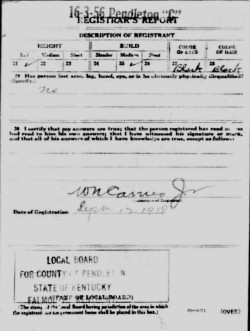 16-3-56 Pendleton "C"
REGISTRAR'S REPORT
DESCRIPTION OF REGISTRANT
HEIGHT BUILD COLOR OF EYES COLOR OF HAIR
Tall Medium Short Slender Medium Stout
21 22 23 24 25 26 27 Black 28 Black
29 Has person lost arm, leg, hand, eye, or is he obviously physically disqualified?
(Specify.)
no
30 I certify that my answers are true; that the person registered has read or has
had read to him his own answers; that I have witnessed his signature or mark,
and that all of his answers of which I have knowledge are true, except as follows:
Jr
Date of Registration Sept 12 1918
LOCAL BOARD
FOR COUNTY OF PENDLETON
STATE OF KENTUCKY
(STAMP OF LOCAL BOARD)
(The stamp of the Local Board having jurisdiction of the area in which
the registrant has his permanent home shall be placed in this box.)
(OVER)